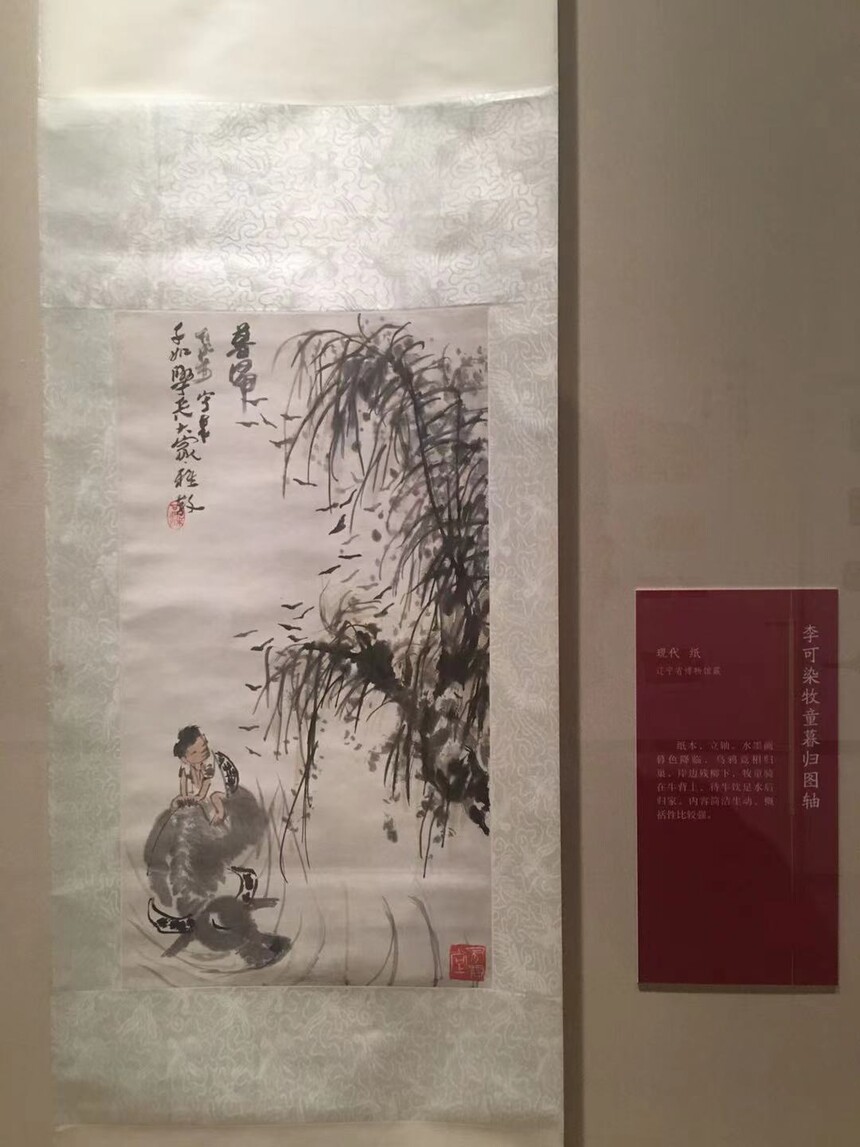 暮归
可染写
子如学长大家雅教
李可染牧童暮归图轴
现代 纸
辽宁省博物馆藏
纸本，立轴，水墨画
暮色降临，乌鸦竞相归
巢。岸边残柳下，牧童骑
在牛背上，待牛饮足水后
归家。内容简洁生动，概
括性比较强。